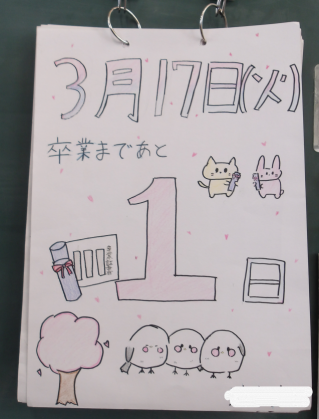 3月17日(火)
卒業まであと
1日